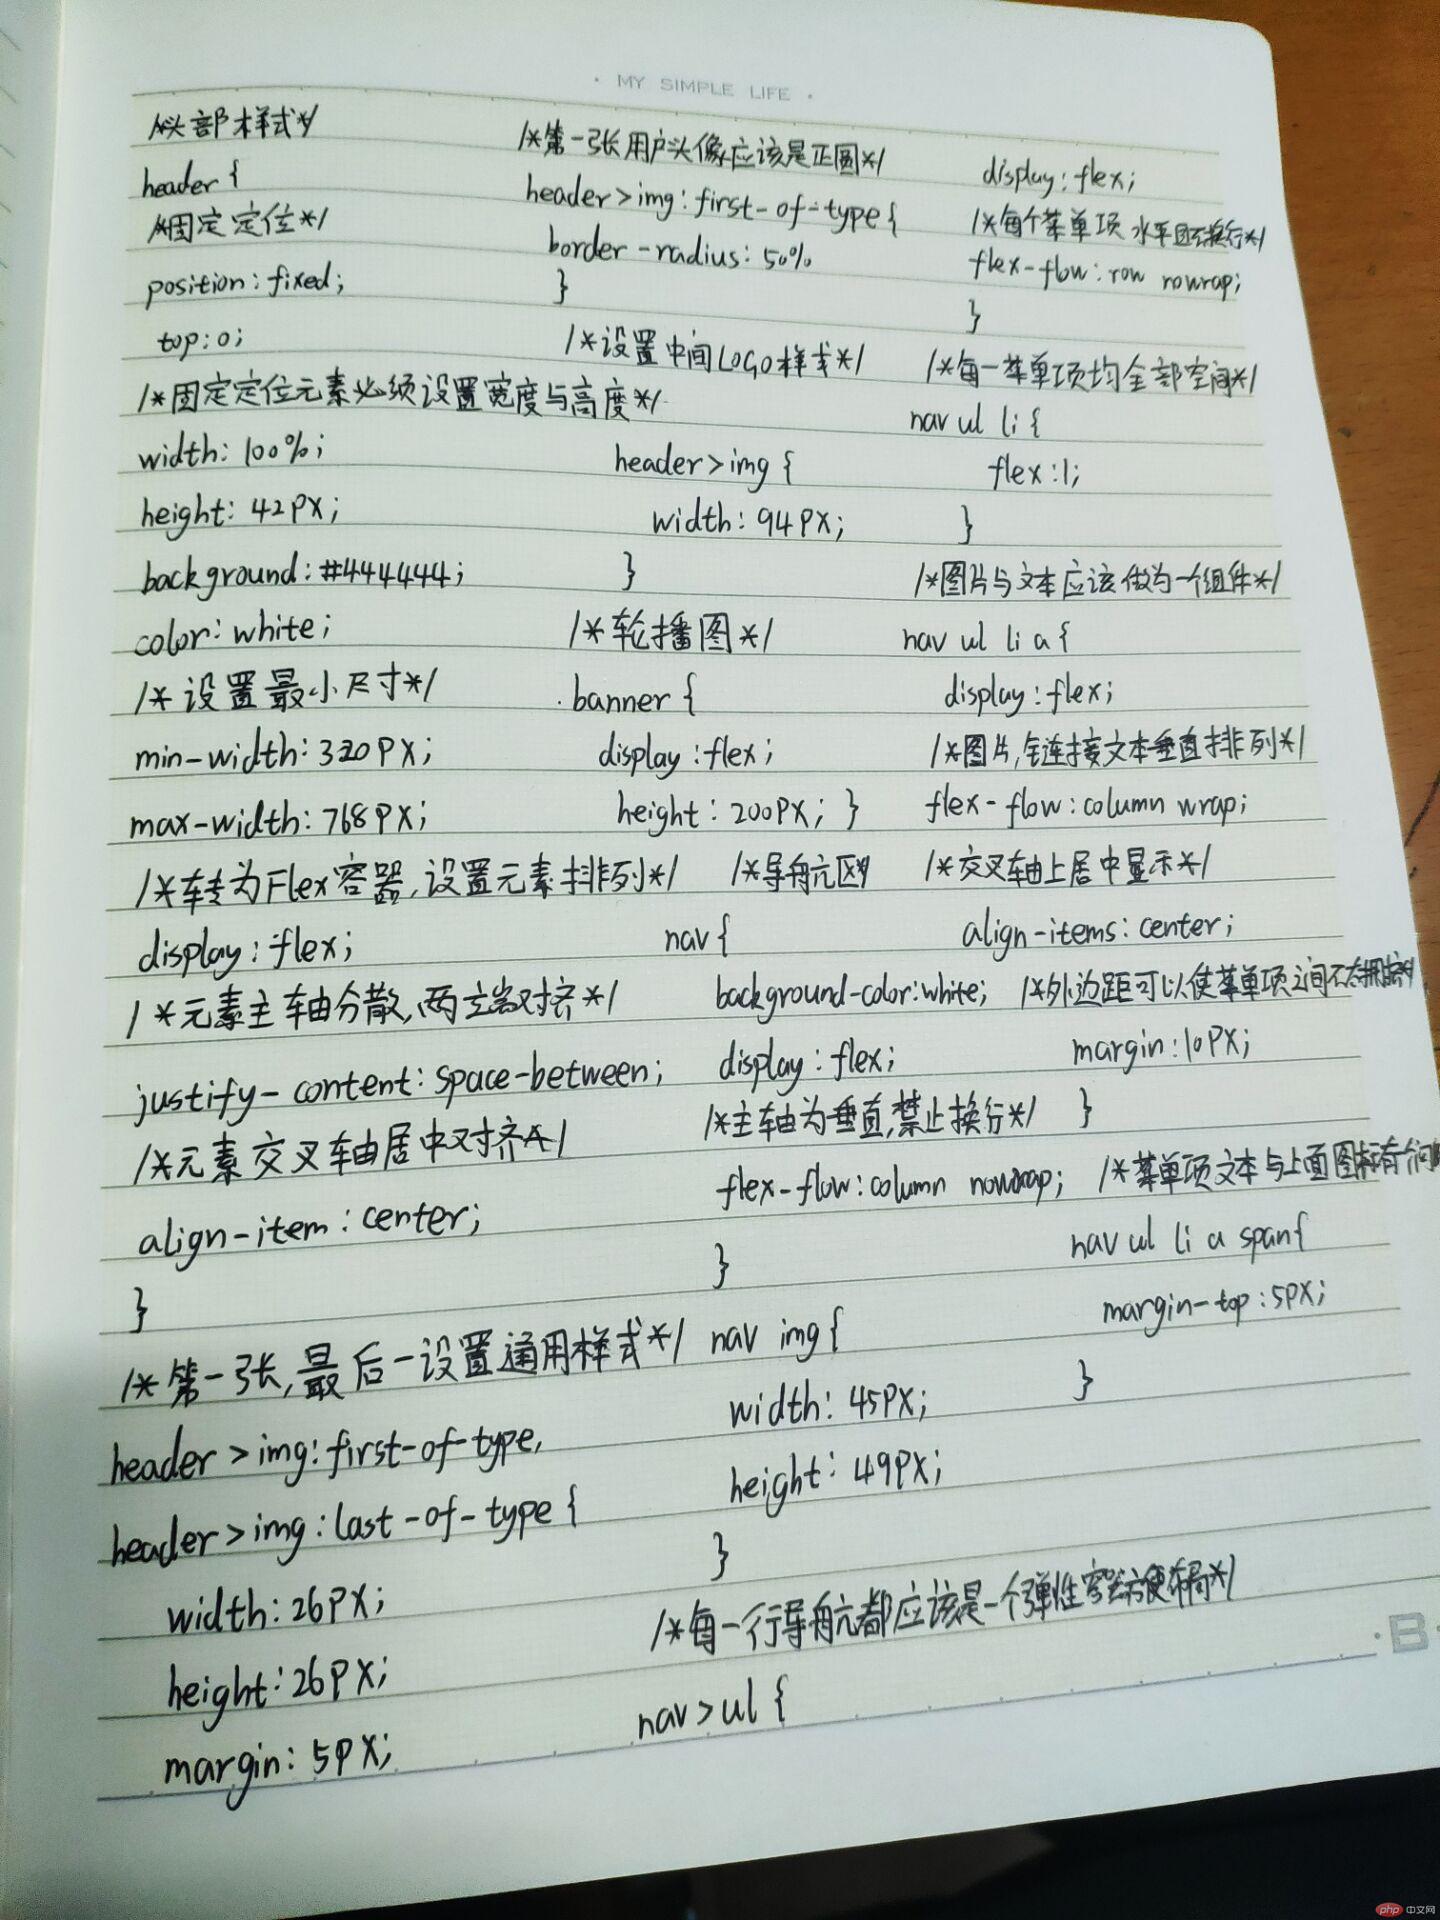 · MY SIMPLE LIFE ·
/*头部样式*/
header {
/*固定定位*/
position: fixed;
top: 0;
/*固定定位元素必须设置宽度与高度*/
width: 100%;
height: 42PX;
background: #444444;
color: white;
/* 设置最小尺寸*/
min-width: 320PX;
max-width: 768PX;
/*转为Flex容器,设置元素排列*/
display: flex;
/*元素主轴分散,两端对齐*/
justify-content: space-between;
/*元素交叉轴居中对齐*/
align-item: center;
}
/*第一张,最后一设置通用样式*/
header>img:first-of-type,
header>img:last-of-type {
width: 26PX;
height: 26PX;
margin: 5PX;
/*第一张用户头像应该是正圆*/
header>img:first-of-type{
border-radius: 50%
}
/*设置中间LOGO样式*/
header>img {
width: 94PX;
}
/*轮播图*/
.banner {
display: flex;
height: 200PX; }
/*导航区*/
nav {
background-color: white;
display: flex;
/*主轴为垂直,禁止换行*/
flex-flow: column nowrap;
}
nav img {
width: 45PX;
height: 49PX;
}
/*每一行导航都应该是一个弹性容器方便布局*/
nav>ul {
display: flex;
/*每个菜单项水平且不换行*/
flex-flow: row nowrap;
}
/*每一菜单项均全部空间*/
nav ul li {
flex: 1;
}
/*图片与文本应该做为一个组件*/
nav ul li a {
display: flex;
/*图片,链接文本垂直排列*/
flex-flow: column wrap;
/*交叉轴上居中显示*/
align-items: center;
/*外边距可以使菜单项之间不太拥挤*/
margin: 10PX;
}
/*菜单项文本与上面图标有个间
nav ul li a span{
margin-top: 5PX;
}
·B·
php 中文网